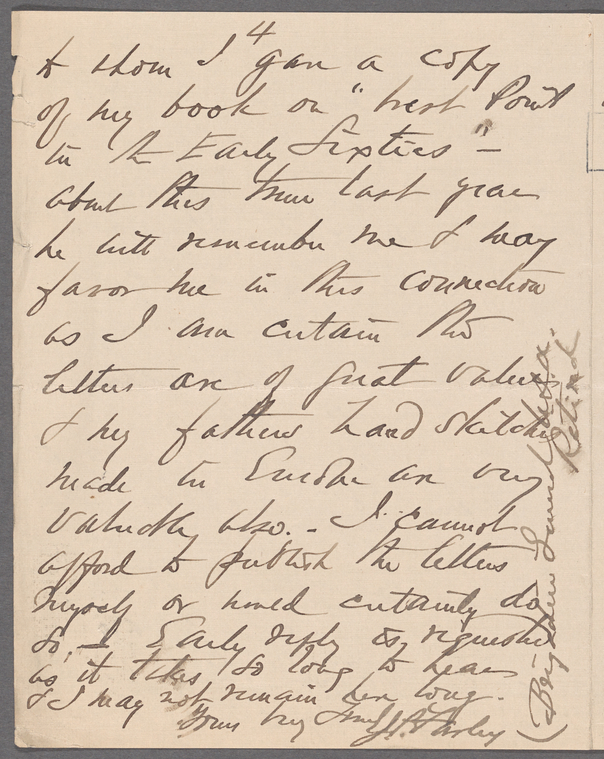 4
to whom I gave a copy
of my book on "West Point
in the Early Sixties" -
about this time last year
he will remember me & may
favor me in this connection
as I am certain the
letters are of great value
& my fathers hand sketches
made in Europe are very
valuable also. - I cannot
afford to publish the letters
myself or would certainly do
so, - Early reply is requested
as it takes so long to hear
& I may not remain here long.
Yours very truly J.P. Farley
(Brigadier General U.S.A.
Retired